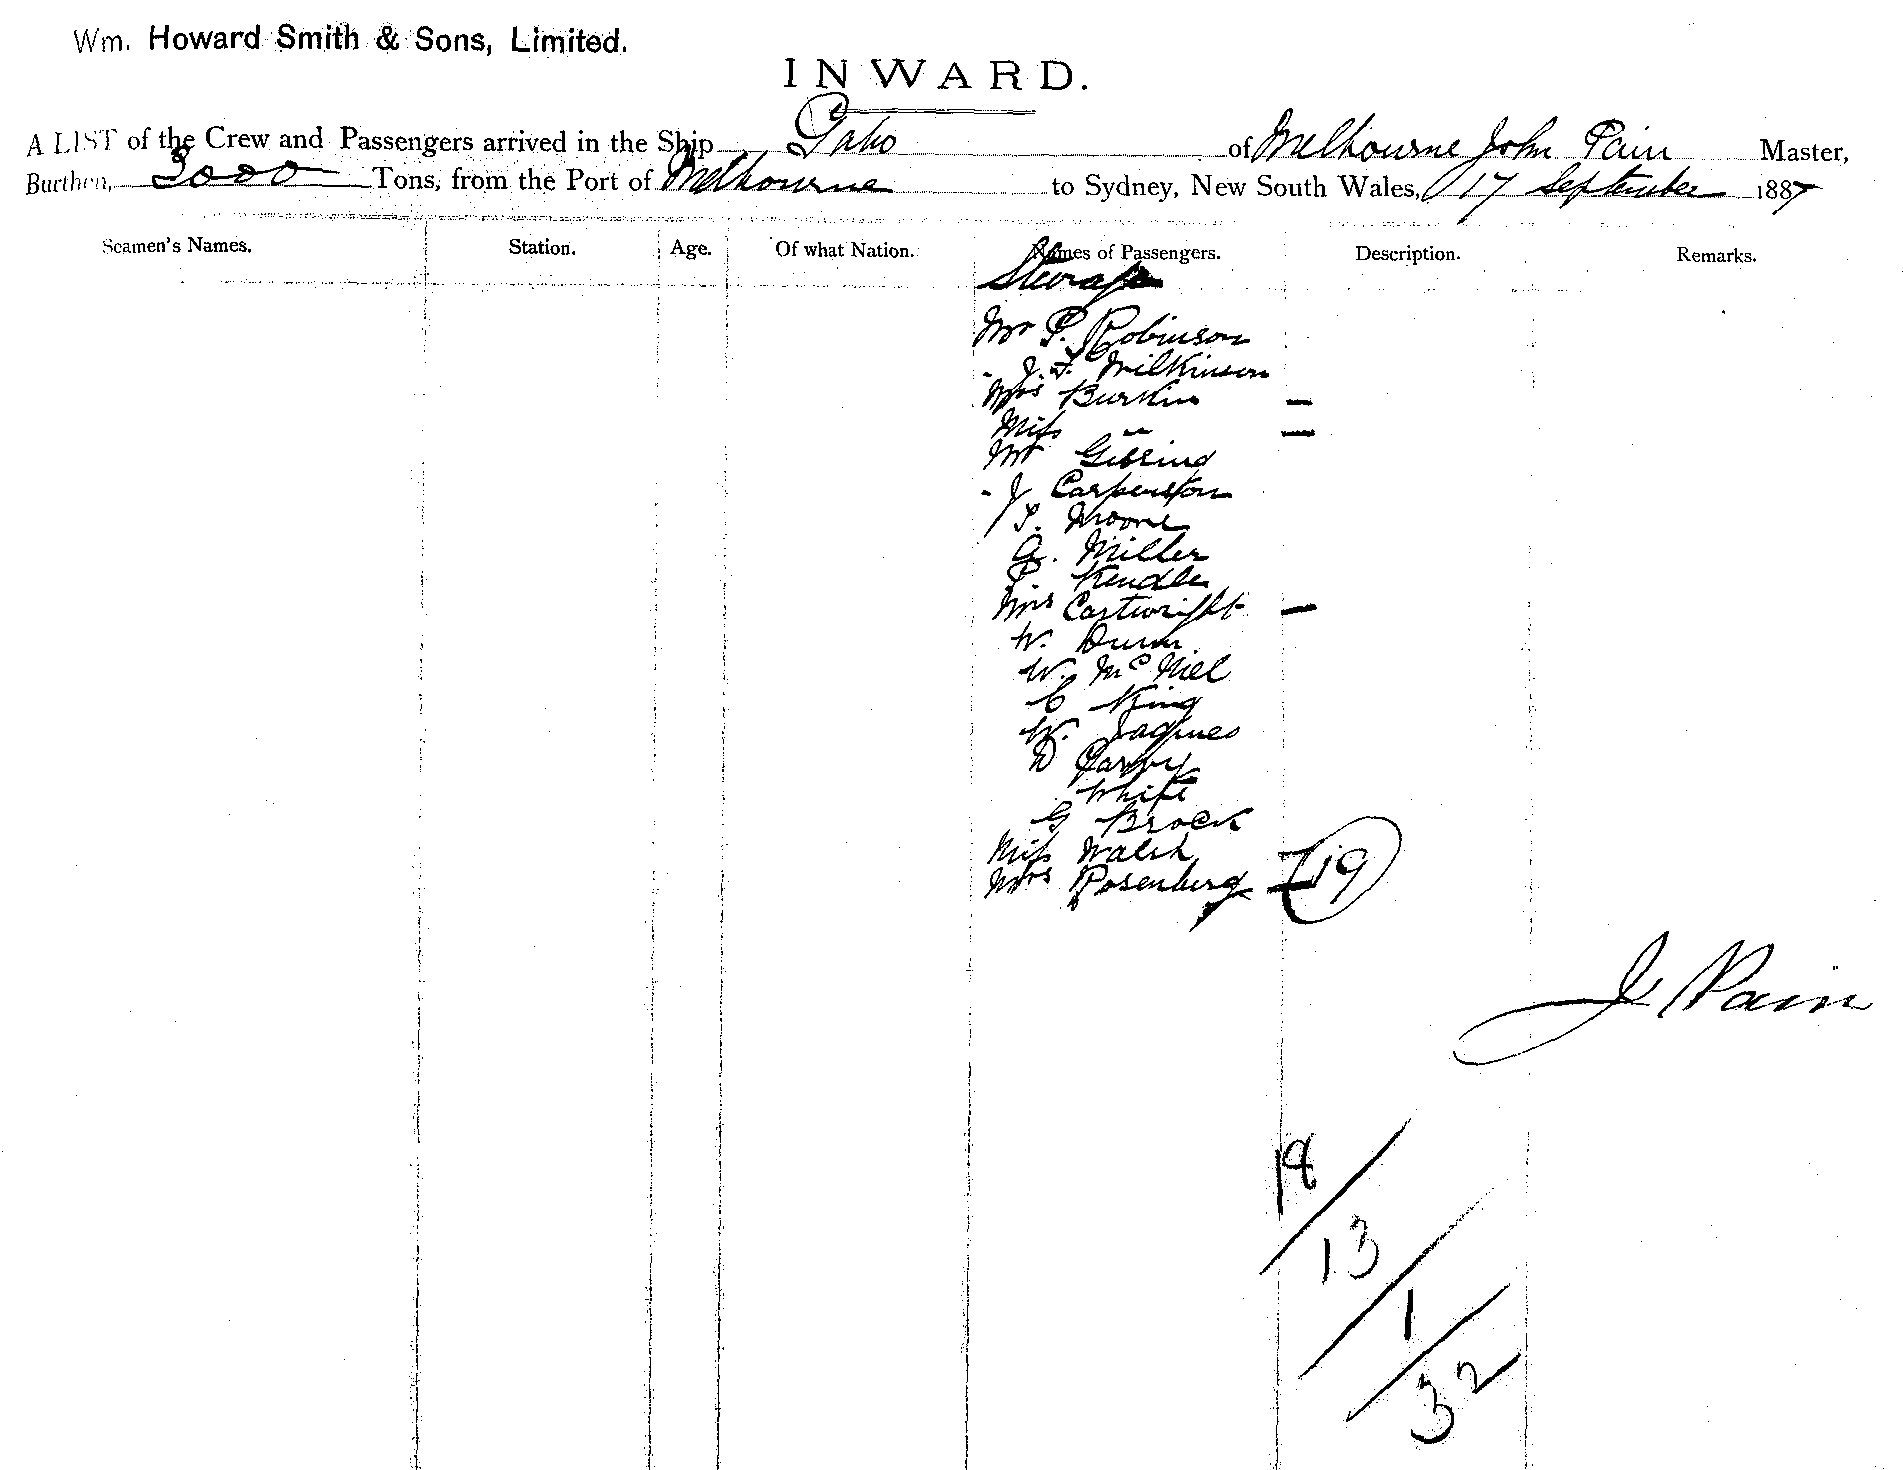 Wm. Howard Smith & Sons, Limited.
INWARD.
A LIST of the Crew and Passengers arrived in the Ship Gabo of Melbourne John Pain Master,
Burthen, 3000 Tons, from the Port of Melbourne to Sydney, New South Wales, 17 September 1887
Seamen's Names. Station. Age. Of what Nation. Names of Passengers. Description. Remarks.
Steerage
Mr P. Robinson
" J. F. Wilkinson
Mrs Burkin —
Miss " —
Mr Gissing
" J Carpenter
P. Moore
A. Miller
P. Kendle
Mrs Cartwright —
W. Dunn
W. McNiel
C King
W. Jaques
D Garvy
White
G Brock
Miss Walsh —
Mrs Rosenberg — 19
J Pain
18
13
1
32